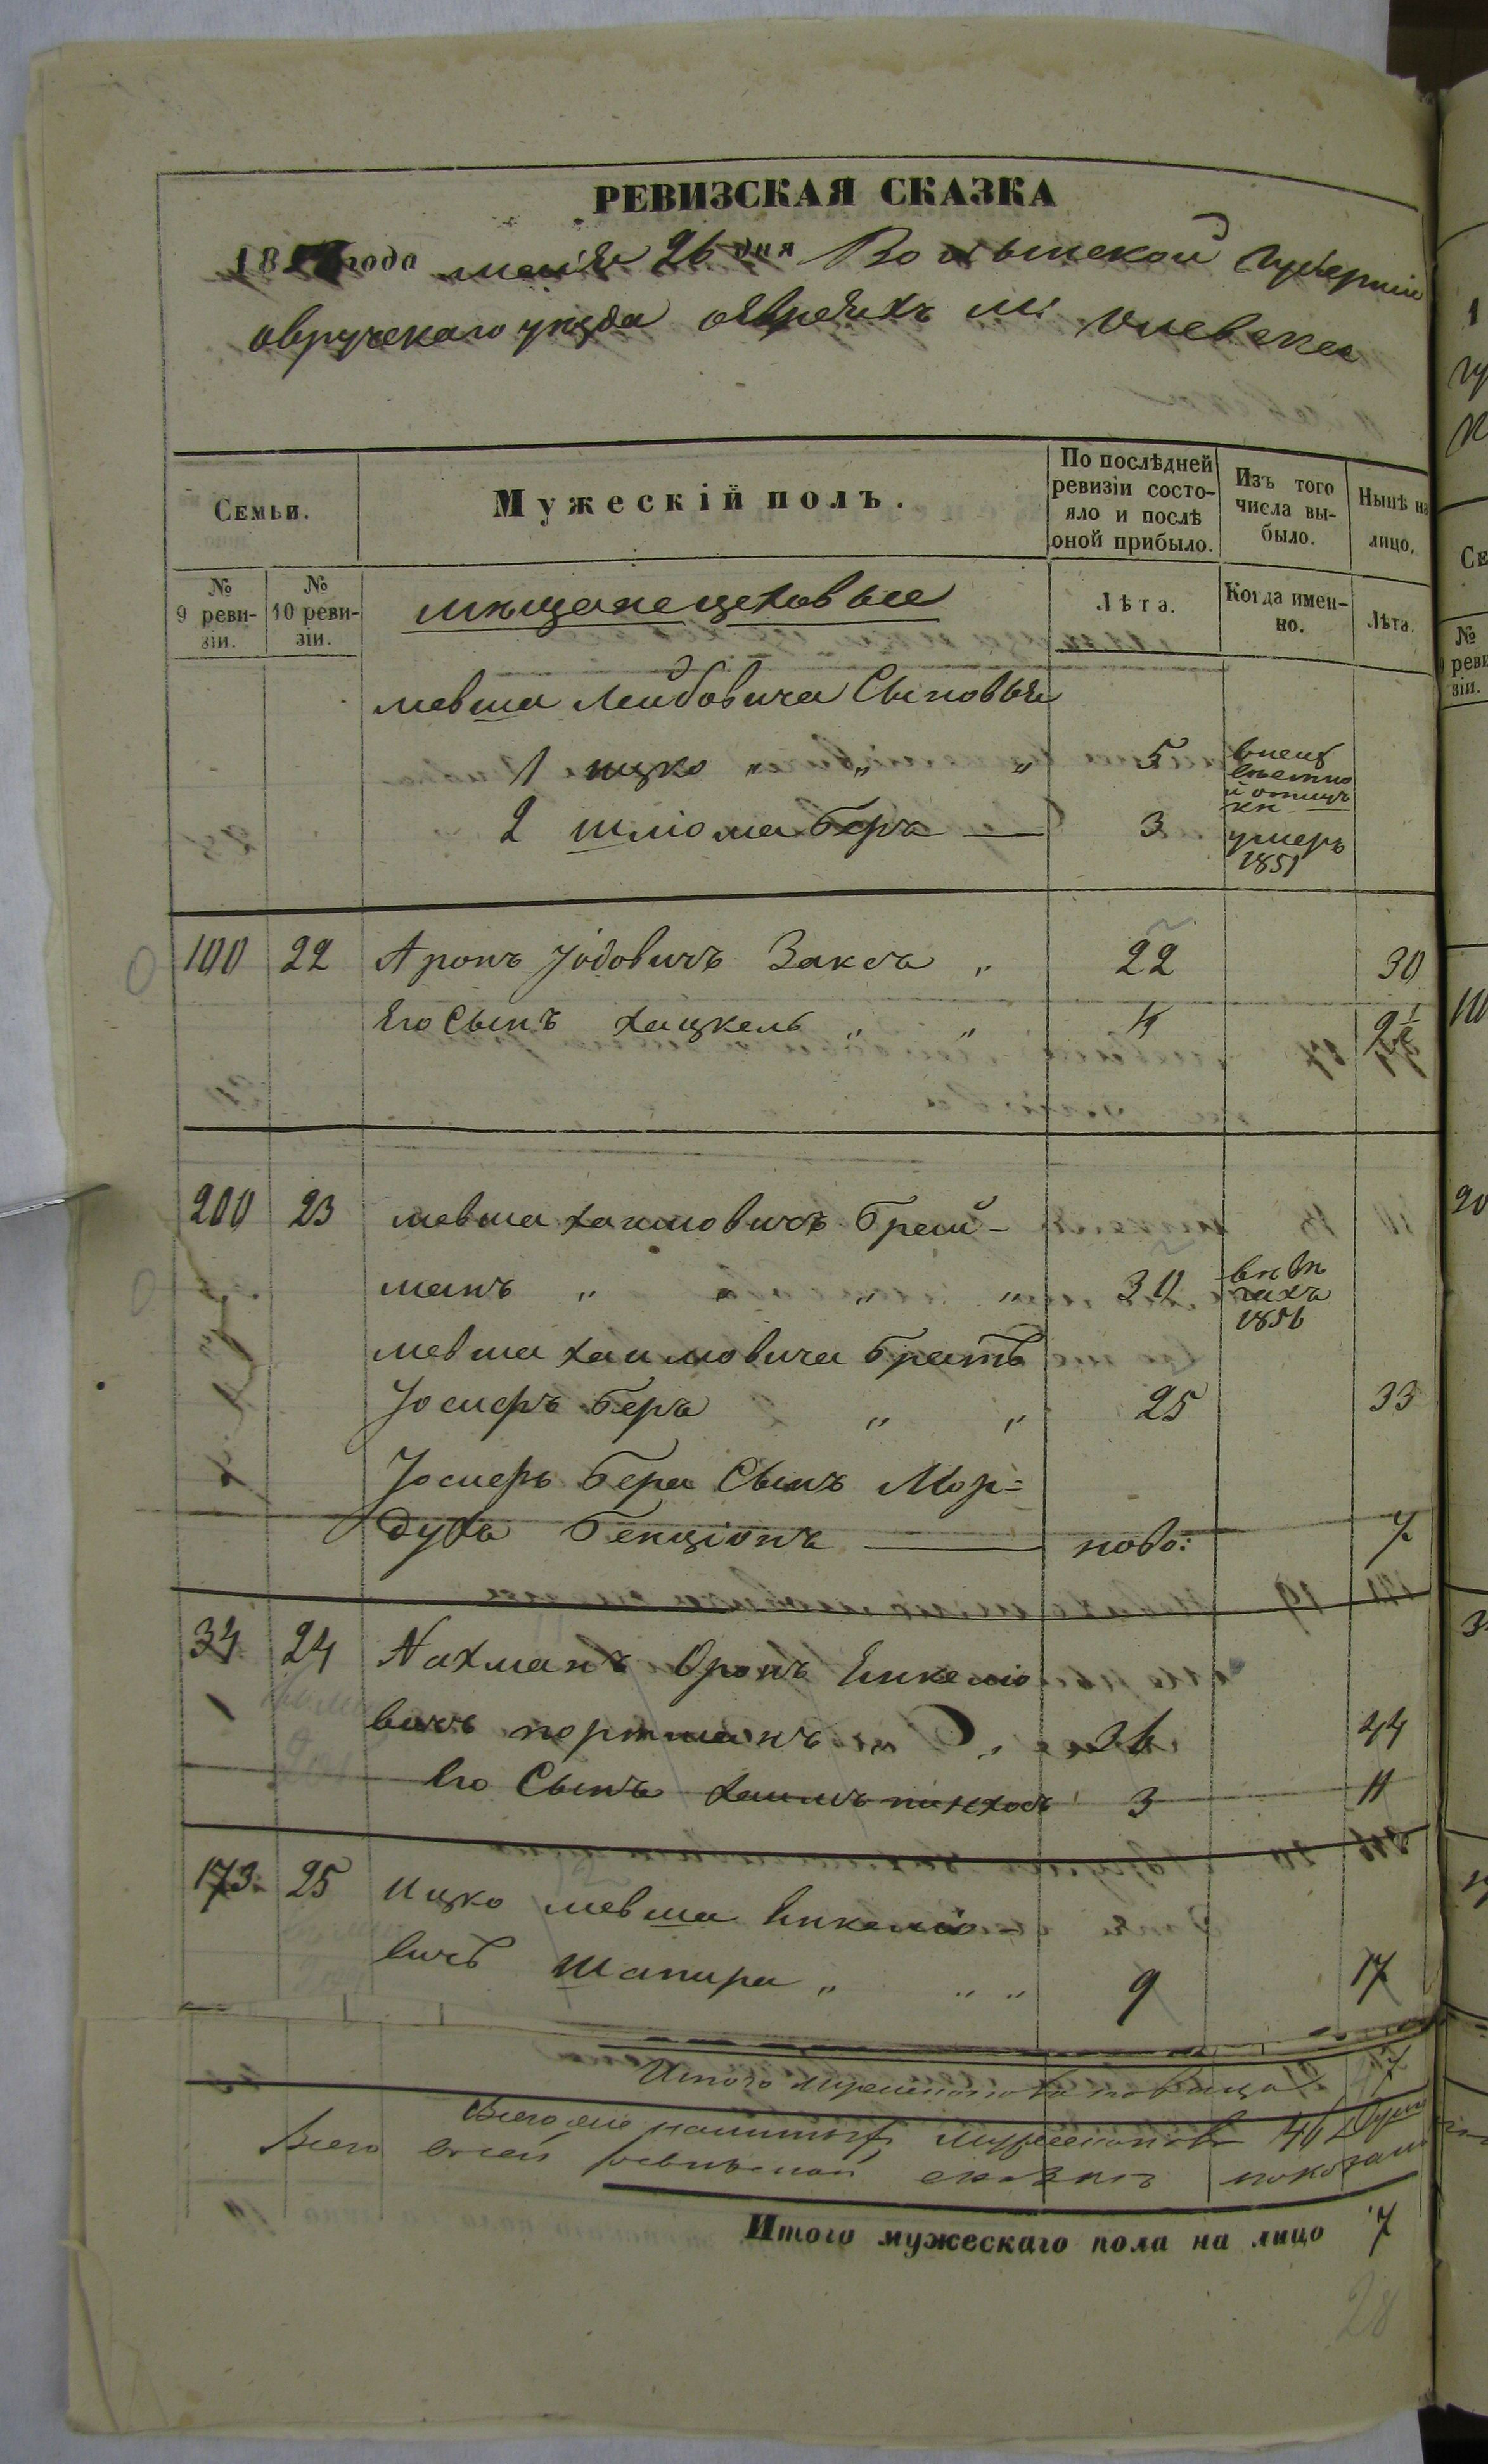 РЕВИЗСКАЯ СКАЗКА
18 года маія 26 дня Волынской Губерніи
овручскаго уѣзда о Евреяхъ м: Олевска
Семьи.
Мужескій полъ.
По послѣдней ревизіи состо-
яло и послѣ оной прибыло.
Изъ того числа вы-
было.
Нынѣ на лицо.
№ 9 реви-
зіи.
№ 10 реви-
зіи.
мѣщане цеховые
Лѣта.
Когда имен-
но.
Лѣта.
мевша Лейбовича Сыновья
1 ицко „ „ „ 5
2 шліома Беръ — 3 умеръ 1851
100 22 Аронъ Іодовичъ Заксъ „ 22 30
Его Сынъ хацкель „ „ 4
200 23 мевша хаимовичъ Брей-
манъ „ „ „ „ 30 1856
мевша хаимовича братъ
Іосифъ Беръ „ „ 25 33
Іосифъ Бера Сынъ Мор=
духъ Бенціонъ — ново: 7
34 24 Нахманъ Оронъ Енкеліо
вичъ портманъ „ „ 36 44
Его Сынъ хаимъ пинхосъ 3 11
173. 25 Ицко мевша Енкеліо-
вичъ Шапира „ „ „ 9 17
Итого мужескаго пола на лицо 7
Всего
всей ревизской сказкѣ показано
Итого мужескаго пола на лицо 7
28